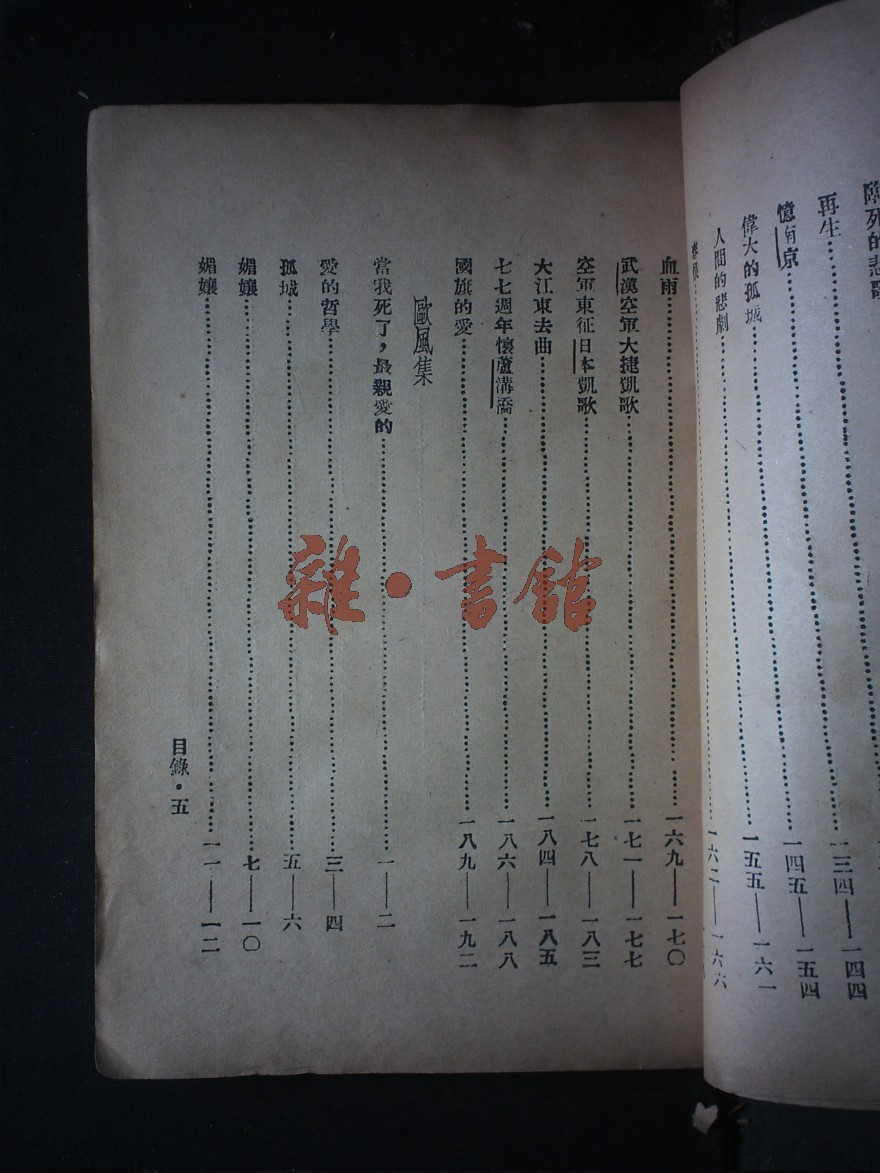 再生……一三四——一四四
憶南京……一四五——一五四
偉大的孤城……一五五——一六一
人間的悲劇……一六二——一六六
血雨……一六九——一七〇
武漢空軍大捷凱歌……一七一——一七七
空軍東征日本凱歌……一七八——一八三
大江東去曲……一八四——一八五
七七週年懷蘆溝橋……一八六——一八八
國旗的愛……一八九——一九二
歐風集
當我死了，最親愛的……一——二
愛的哲學……三——四
孤城……五——六
媚孃……七——一〇
媚孃……一一——一二
目錄·五
雜·書館